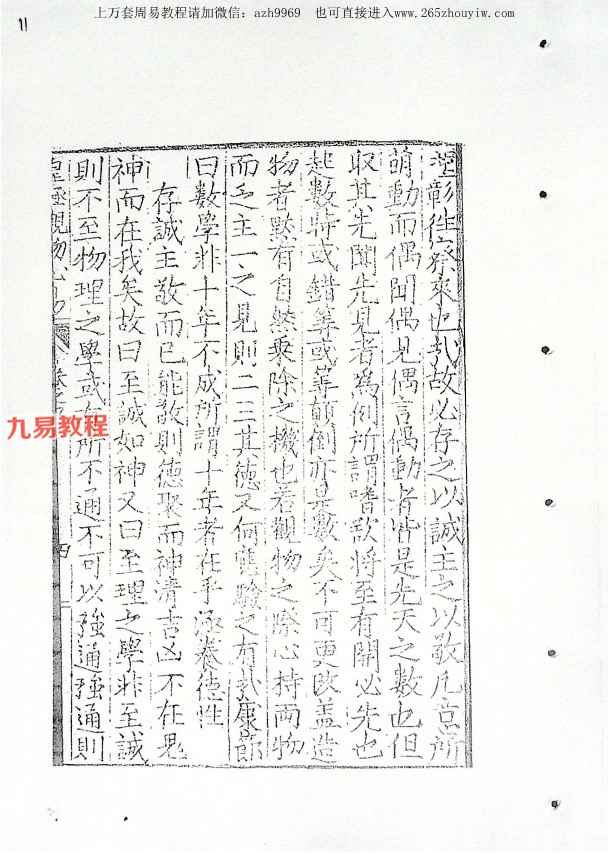 上万套周易教程请加微信：azh9969　也可直接进入www.265zhouyiw.com
11
彰往察來也哉故必存之以誠主之以敬凡意所
萌動而偶聞偶見偶言偶動者皆是先天之數也但
取其先聞先見者為例所謂嗜欲將至有開必先也
起數時或錯筭或筭顛倒亦是數矣不可更改盖造
物者黙有自然乗除之機也若觀物之際心持兩物
而乏主一之見則二三其德又何應驗之有哉康節
曰數學非十年不成所謂十年者在乎涵養德性
存誠主敬而已能敬則德聚而神清吉凶不在鬼
神而在我矣故曰至誠如神又曰至理之學非至誠
則不至物理之學或有所不通不可以強通強通則
皇極觀物
四
九易教程